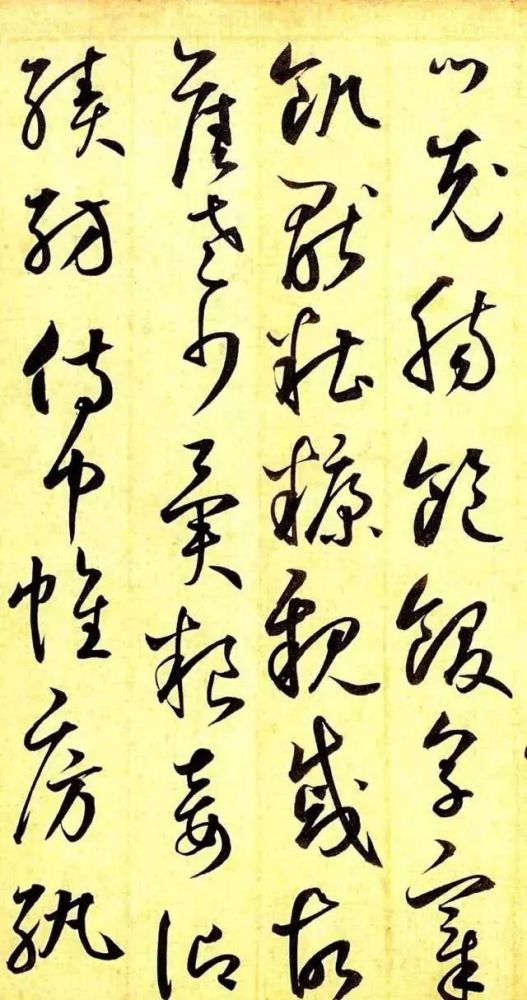 口充腸飽飫烹宰
飢厭糟糠親戚故
舊老少異糧妾御
績紡侍巾帷房紈